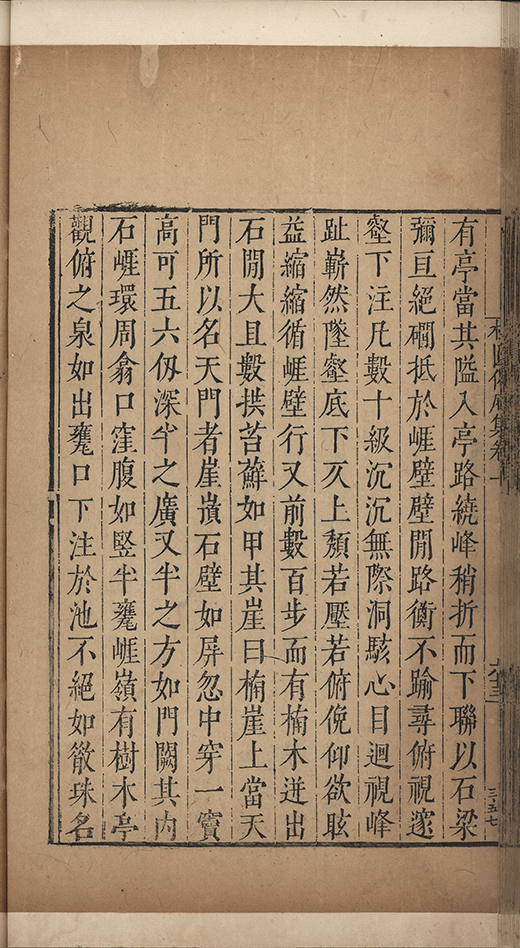 有亭當其隘入亭路繞峰稍折而下聯以石梁
彌亘絕磵抵於崕壁壁閒路衡不踰尋俯視邃
壑下注凡數十級沉沉無際洞駭心目迴視峰
趾嶄然墜壑底下仄上頹若壓若俯俛仰欲眩
益縮縮循崕壁行又前數百步而有楠木迸出
石閒大且數拱苔蘚如甲其崖曰楠崖上當天
門所以名天門者崖嵿石壁如屏忽中穿一竇
高可五六仭深半之廣又半之方如門闕其内
石崕環周翕口窪腹如竪半甕崕嶺有樹木亭
觀俯之泉如出甕口下注於池不絕如散珠名
三五七